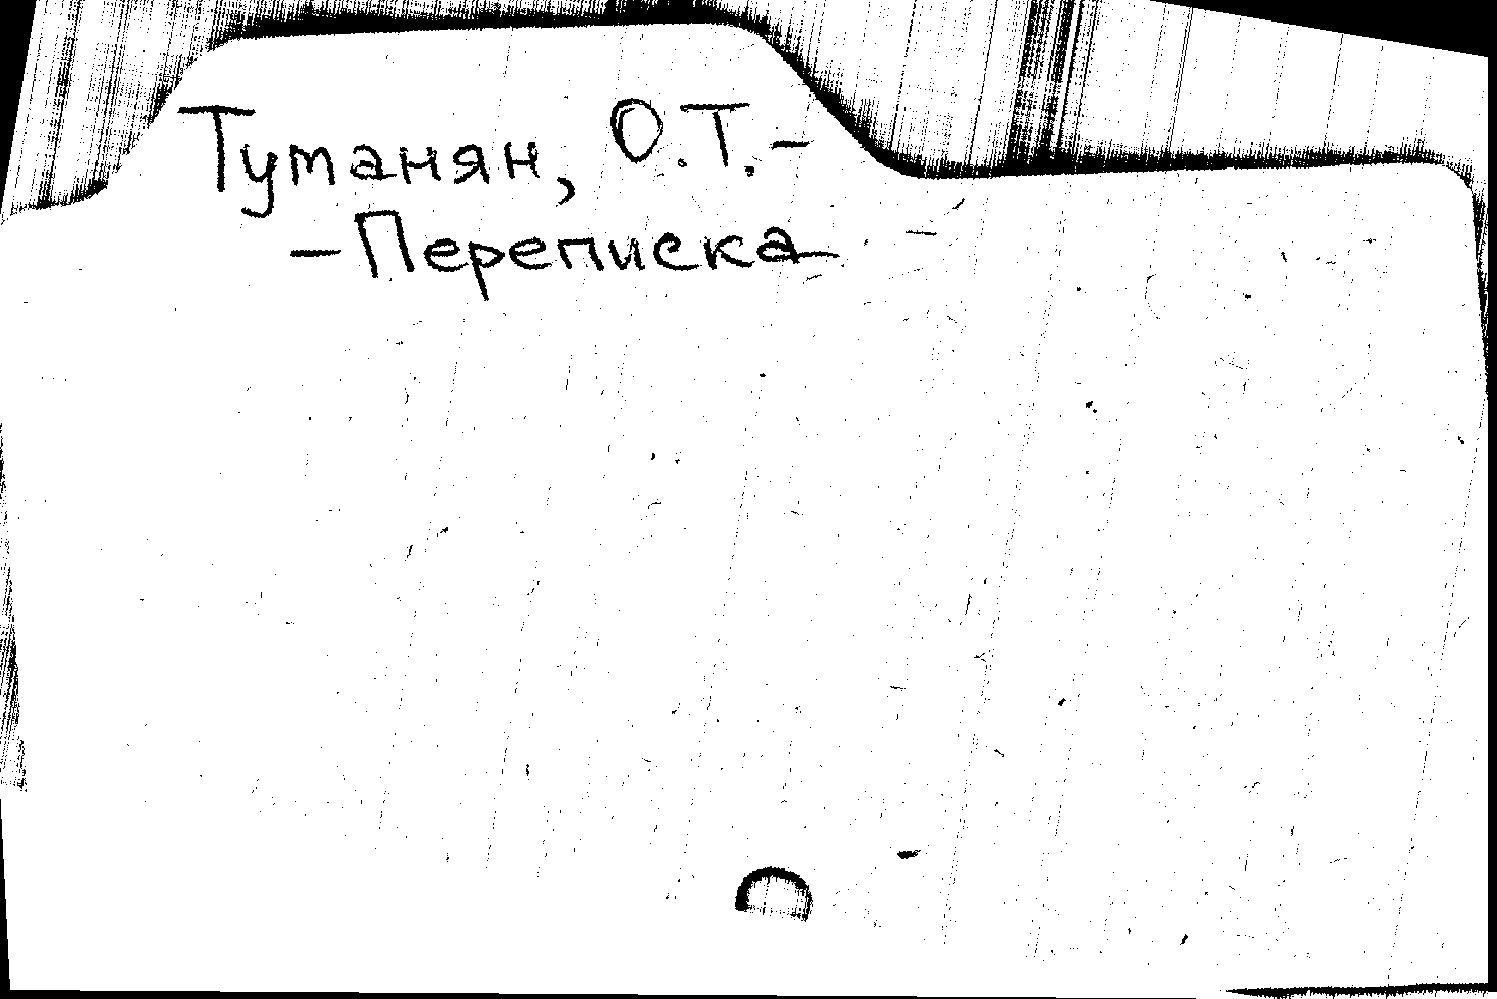 Туманян, О.Т.-
-Переписка-